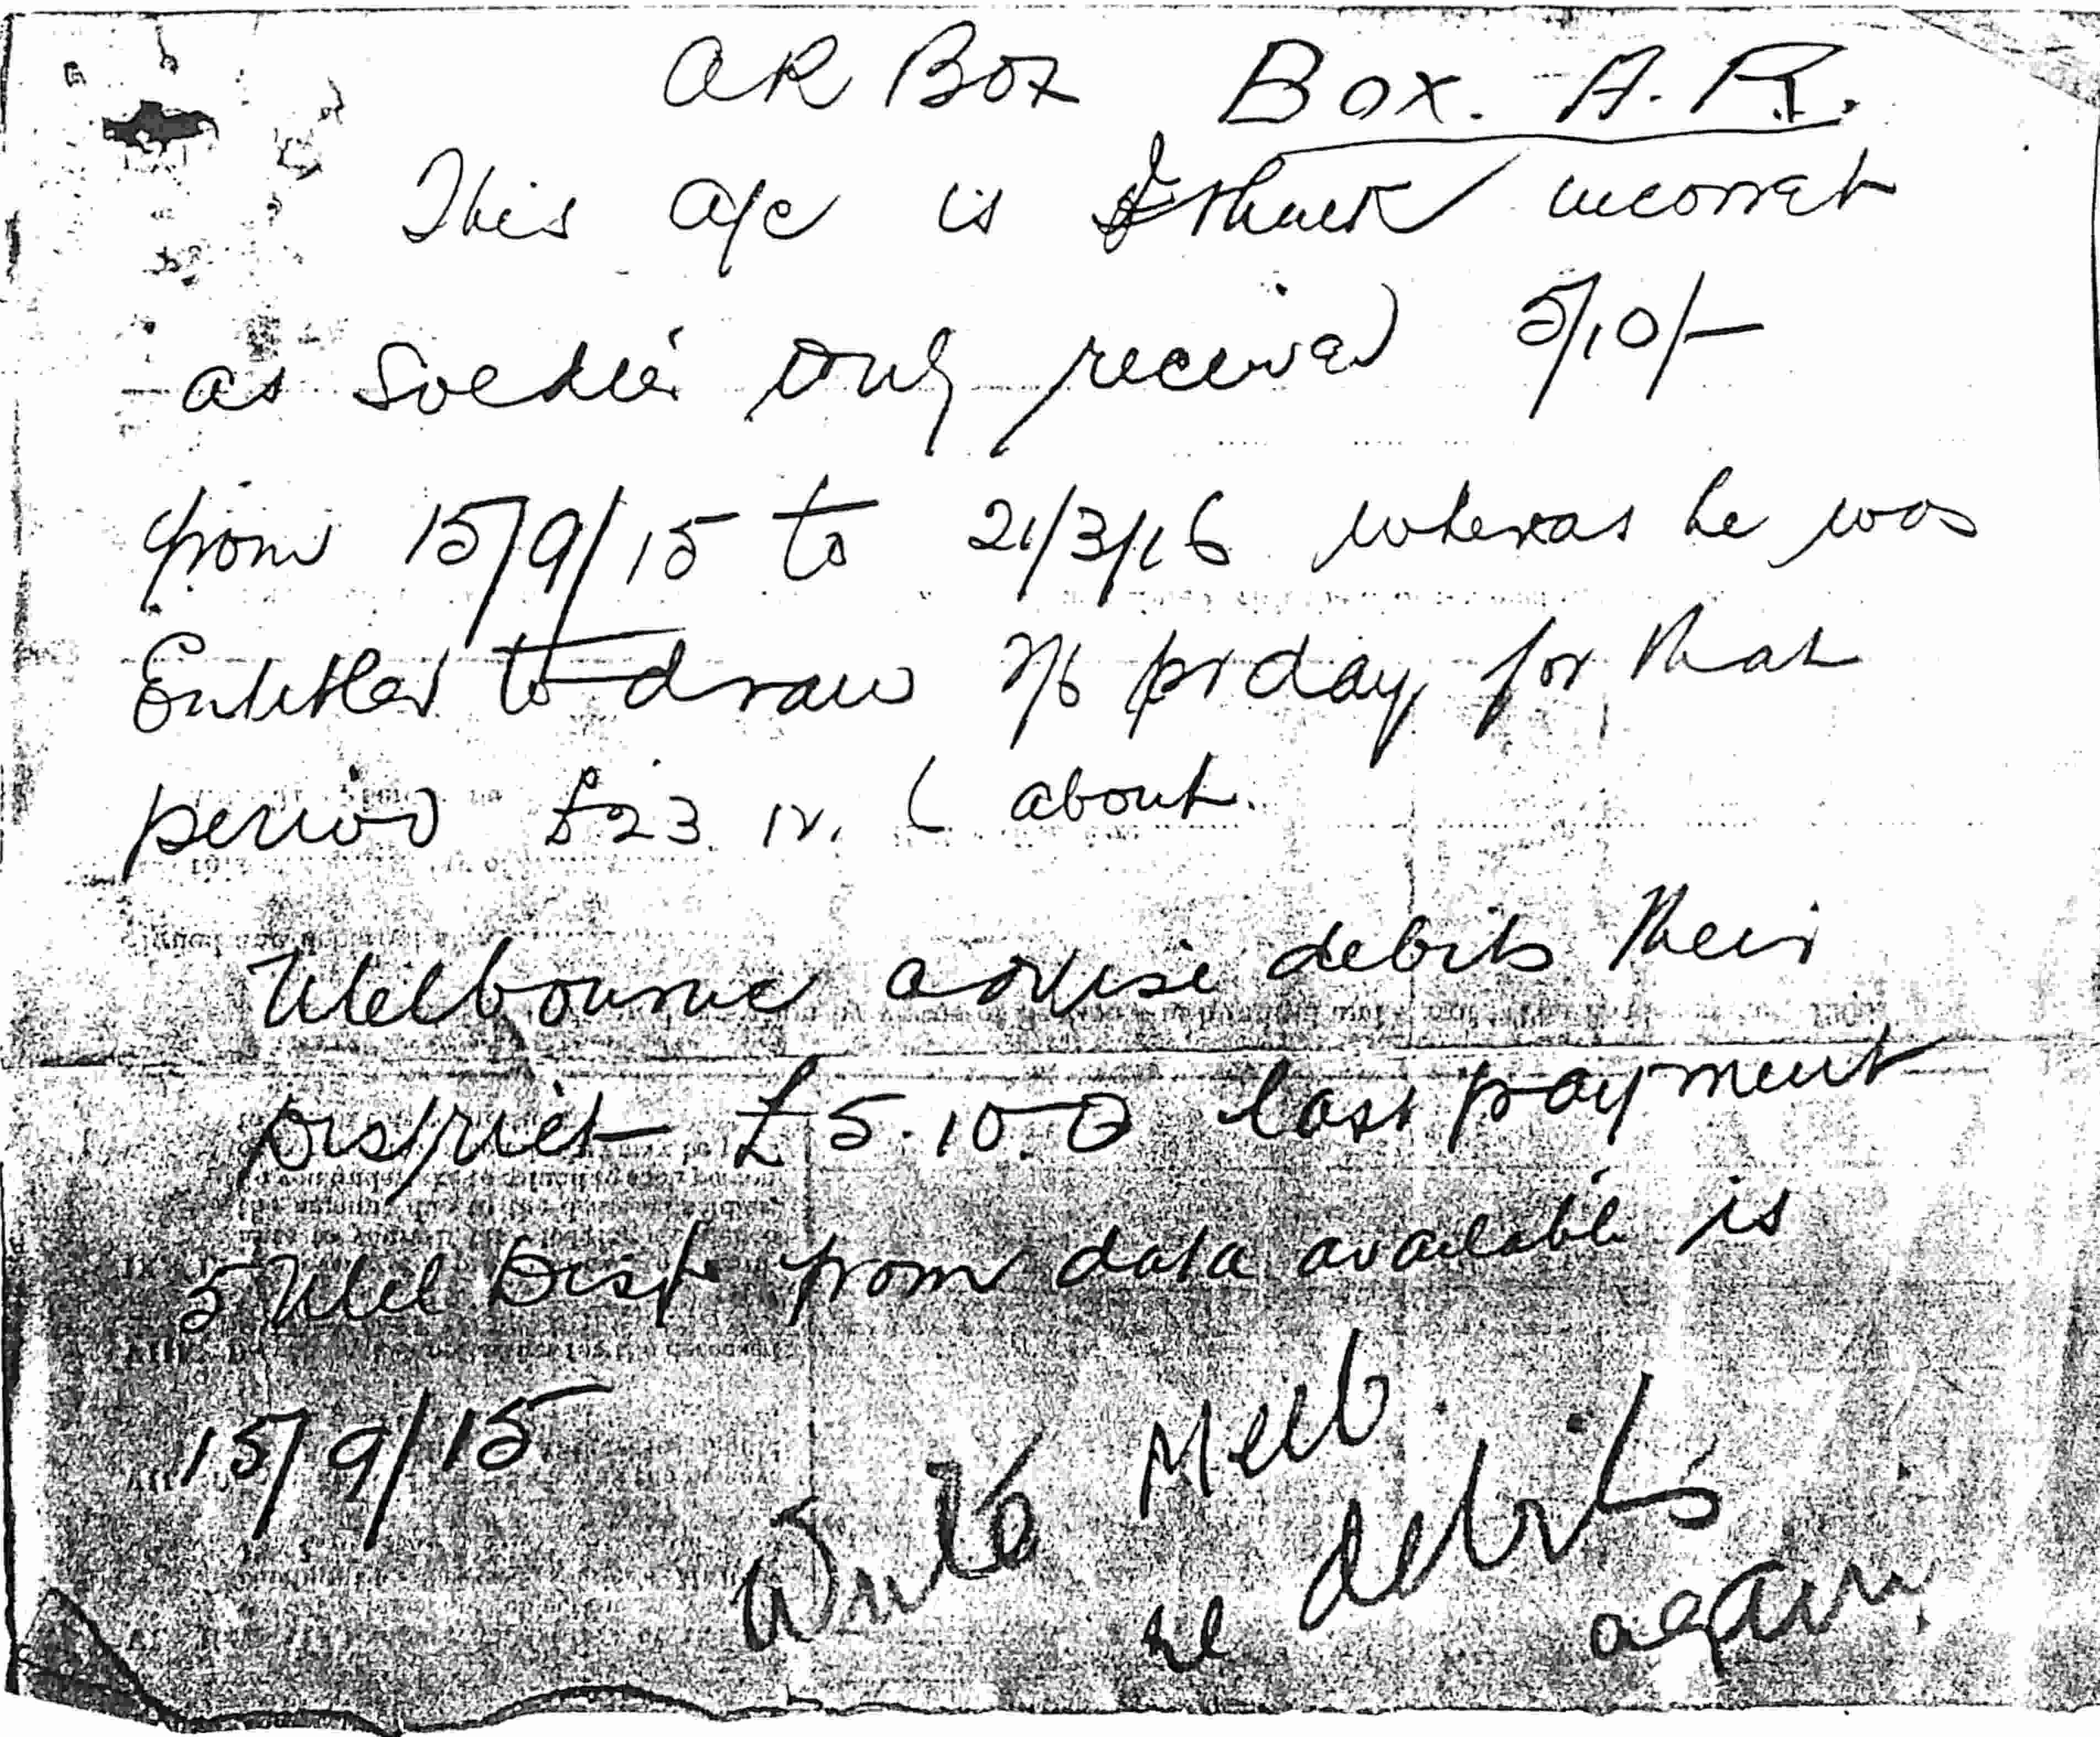 AR Box Box. A. R.
This a/c is I think incorret
as Soldier only received 5/10/-
from 15/9/15 to 21/3/16 wheras he was
Entitled to draw 2/6 pr day for that
period £23. 12. 6 about.
Melbourne advise debits their
District £5.10.0 last payment
5 Mil Dist from data available is
15/9/15
Write Melb.
re debits
again